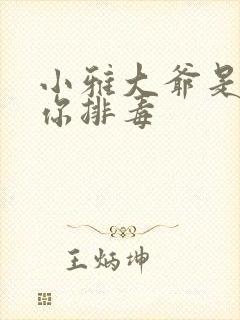 小雅大爷是
你排毒
王炳坤